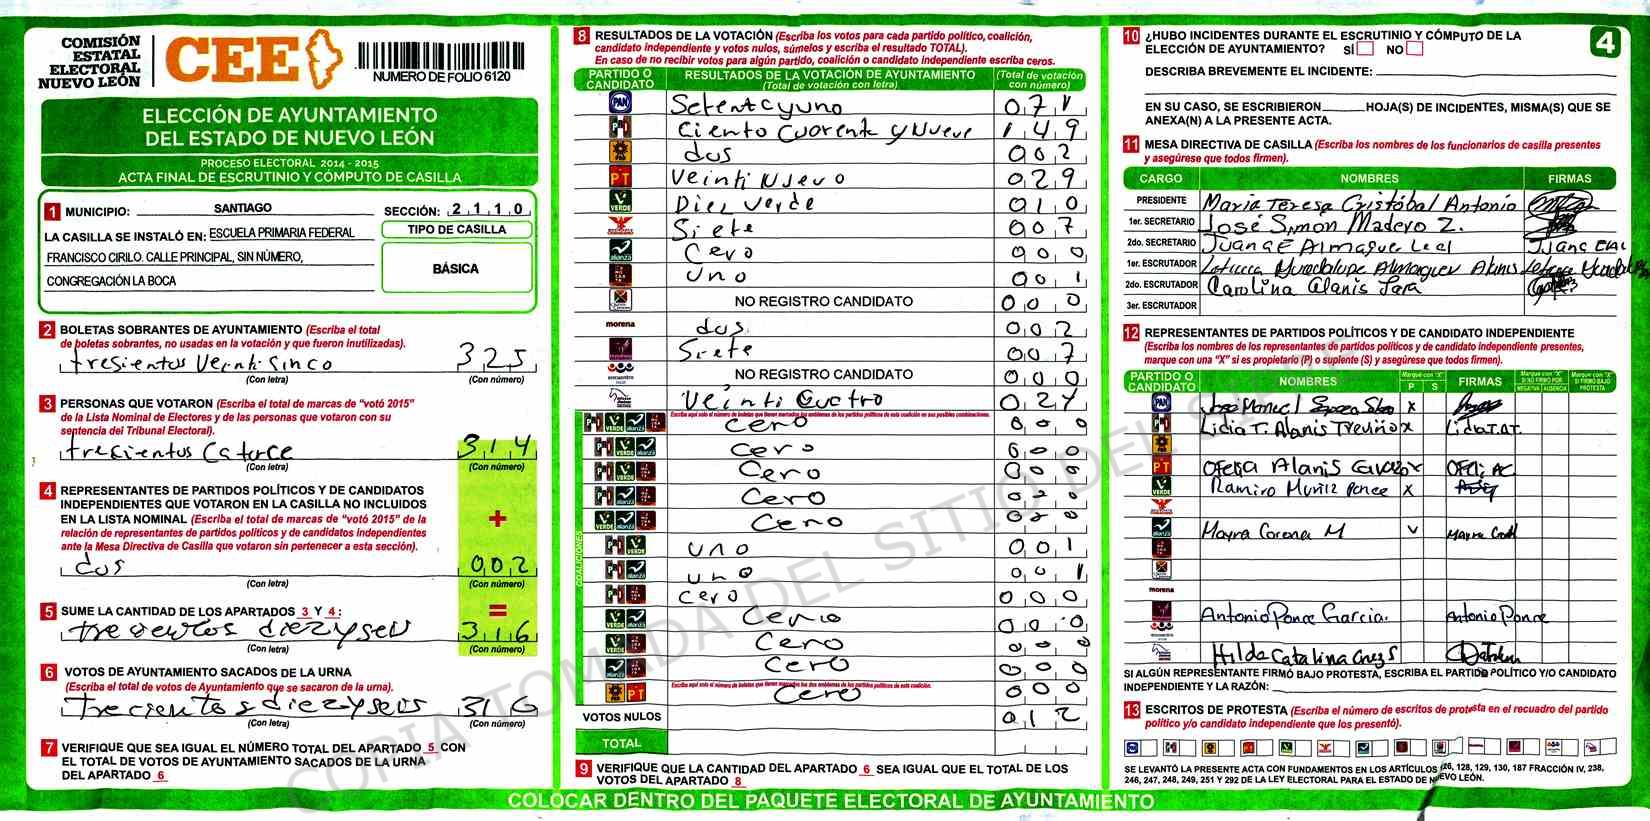 COMISIÓN
ESTATAL
ELECTORAL
NUEVO LEÓN
CEE
NUMERO DE FOLIO 6120
ELECCIÓN DE AYUNTAMIENTO
DEL ESTADO DE NUEVO LEÓN
PROCESO ELECTORAL 2014 - 2015
ACTA FINAL DE ESCRUTINIO Y CÓMPUTO DE CASILLA
1 MUNICIPIO: SANTIAGO SECCIÓN: 2110
LA CASILLA SE INSTALÓ EN: ESCUELA PRIMARIA FEDERAL
FRANCISCO CIRILO. CALLE PRINCIPAL, SIN NÚMERO,
CONGREGACIÓN LA BOCA
TIPO DE CASILLA
BÁSICA
2 BOLETAS SOBRANTES DE AYUNTAMIENTO (Escriba el total
de boletas sobrantes, no usadas en la votación y que fueron inutilizadas).
tresientos Veinti sinco 325
(Con letra) (Con número)
3 PERSONAS QUE VOTARON (Escriba el total de marcas de "votó 2015"
de la Lista Nominal de Electores y de las personas que votaron con su
sentencia del Tribunal Electoral).
tresientos Catorce 314
(Con letra) (Con número)
4 REPRESENTANTES DE PARTIDOS POLÍTICOS Y DE CANDIDATOS
INDEPENDIENTES QUE VOTARON EN LA CASILLA NO INCLUIDOS
EN LA LISTA NOMINAL (Escriba el total de marcas de "votó 2015" de la
relación de representantes de partidos políticos y de candidatos independientes
ante la Mesa Directiva de Casilla que votaron sin pertenecer a esta sección).
+
dos 002
(Con letra) (Con número)
5 SUME LA CANTIDAD DE LOS APARTADOS 3 Y 4: =
trecientos diezyseis 316
(Con letra) (Con número)
6 VOTOS DE AYUNTAMIENTO SACADOS DE LA URNA
(Escriba el total de votos de Ayuntamiento que se sacaron de la urna).
trecientos diezyseis 316
(Con letra) (Con número)
7 VERIFIQUE QUE SEA IGUAL EL NÚMERO TOTAL DEL APARTADO 5 CON
EL TOTAL DE VOTOS DE AYUNTAMIENTO SACADOS DE LA URNA
DEL APARTADO 6
8 RESULTADOS DE LA VOTACIÓN (Escriba los votos para cada partido político, coalición,
candidato independiente y votos nulos, súmelos y escriba el resultado TOTAL).
En caso de no recibir votos para algún partido, coalición o candidato independiente escriba ceros.
PARTIDO O CANDIDATO RESULTADOS DE LA VOTACIÓN DE AYUNTAMIENTO (Total de votación con letra) (Total de votación con número)
PAN Setentayuno 071
PRI Ciento Cuarenta y Nueve 149
PRD dos 002
PT Veinti Nuevo 029
VERDE Diez verde 010
Siete 007
alianza Cero 000
uno 001
NO REGISTRO CANDIDATO 000
morena dos 002
Siete 007
encuentro NO REGISTRO CANDIDATO 000
Veinti Cuatro 024
COALICIONES
Escriba aquí solo el número de boletas que tienen marcados los emblemas de los partidos políticos de esta coalición en sus posibles combinaciones.
PRI VERDE alianza cero 000
PRI VERDE alianza cero 000
PRI VERDE Cero 000
PRI alianza Cero 000
VERDE alianza Cero 000
PRI VERDE uno 001
PRI alianza uno 001
PRI cero 000
VERDE alianza Cerio 000
VERDE Cero 000
alianza Cero 000
Escriba aquí solo el número de boletas que tienen marcados los dos emblemas de los partidos políticos de esta coalición.
PRD PT Cero 000
VOTOS NULOS 012
TOTAL
9 VERIFIQUE QUE LA CANTIDAD DEL APARTADO 6 SEA IGUAL QUE EL TOTAL DE LOS
VOTOS DEL APARTADO 8
10 ¿HUBO INCIDENTES DURANTE EL ESCRUTINIO Y CÓMPUTO DE LA
ELECCIÓN DE AYUNTAMIENTO? SÍ NO
4
DESCRIBA BREVEMENTE EL INCIDENTE:
EN SU CASO, SE ESCRIBIERON HOJA(S) DE INCIDENTES, MISMA(S) QUE SE
ANEXA(N) A LA PRESENTE ACTA.
11 MESA DIRECTIVA DE CASILLA (Escriba los nombres de los funcionarios de casilla presentes
y asegúrese que todos firmen).
CARGO NOMBRES FIRMAS
PRESIDENTE Maria Teresa Cristóbal Antonio
1er. SECRETARIO José Simon Madero Z.
2do. SECRETARIO Juana E Almaguer Leal Juana E
1er. ESCRUTADOR Leticia Guadalupe Almaguer Alanis Leticia Guadalupe
2do. ESCRUTADOR Carolina Alanis Jara
3er. ESCRUTADOR
12 REPRESENTANTES DE PARTIDOS POLÍTICOS Y DE CANDIDATO INDEPENDIENTE
(Escriba los nombres de los representantes de partidos políticos y de candidato independiente presentes,
marque con una "X" si es propietario (P) o suplente (S) y asegúrese que todos firmen).
PARTIDO O CANDIDATO NOMBRES Marque con "X" P S FIRMAS Marque con "X" SI NO FIRMÓ POR NEGATIVA AUSENCIA Marque con "X" SI FIRMÓ BAJO PROTESTA
PAN Jose Manuel X
PRI Lidia T. Alanis Treviño X Lidia T.A.T.
PRD
PT Ofelia Alanis X
VERDE Ramiro Muñiz Ponce X
alianza Mayra Corona M
morena
Antonio Ponce Garcia. Antonio Ponce
Hilda Catalina
SI ALGÚN REPRESENTANTE FIRMÓ BAJO PROTESTA, ESCRIBA EL PARTIDO POLÍTICO Y/O CANDIDATO
INDEPENDIENTE Y LA RAZÓN:
13 ESCRITOS DE PROTESTA (Escriba el número de escritos de protesta en el recuadro del partido
político y/o candidato independiente que los presentó).
SE LEVANTÓ LA PRESENTE ACTA CON FUNDAMENTOS EN LOS ARTÍCULOS 126, 128, 129, 130, 187 FRACCIÓN IV, 238,
246, 247, 248, 249, 251 Y 292 DE LA LEY ELECTORAL PARA EL ESTADO DE NUEVO LEÓN.
COLOCAR DENTRO DEL PAQUETE ELECTORAL DE AYUNTAMIENTO
COPIA TOMADA DEL SITIO DEL SIPRE